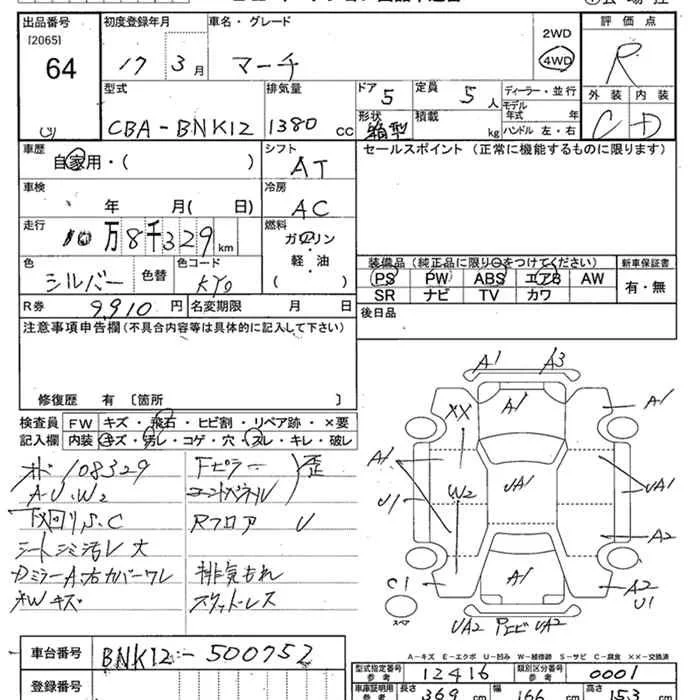 出品番号
[2065]
64
初度登録年月
17年 3月
車名・グレード
マーチ
2WD
4WD
評価点
R
外装 内装
C D
型式
CBA-BNK12
排気量
1380 CC
ドア 5
形状 箱型
定員 5人
積載 kg
ディーラー・並行
モデル年式 年
ハンドル 左・右
車歴
自家用・( )
シフト
AT
セールスポイント(正常に機能するものに限ります)
車検
年 月( 日)
冷房
AC
走行
10万8千329km
燃料
ガソリン・軽油
( )
色
シルバー
色替
色コード
KY0
装備品(純正品に限り○をつけてください)
PS PW ABS エアB AW
SR ナビ TV カワ
新車保証書
有・無
R券 9,910円
名変期限 月 日
後日品
注意事項申告欄(不具合内容等は具体的に記入して下さい)
修復歴 有〔箇所 〕
検査員記入欄
FW キズ・飛石・ヒビ割・リペア跡・×要
内装 キズ・汚レ・コゲ・穴・スレ・キレ・破レ
108329
A.U.W2
下回りS.C
シートシミ汚レ大
DミラーA.右カバーワレ
AWキズ
Fピラー
エンドパネル
歪
Rフロア U
排気もれ
スペアレス
A1 A3
A1
XX
A1
A1
U1
W2
UA1
UA1
A2
C1
A1
A2
U1
スペア
UA2
UA2
A-キズ E-エクボ U-凹み W-補修跡 S-サビ C-腐食 ××-交換済
車台番号
BNK12-500752
登録番号
型式指定番号
参考
12416
類別区分番号
参考
0001
車庫証明用
参考
長さ 369 cm
幅 166 cm
高さ 153 cm